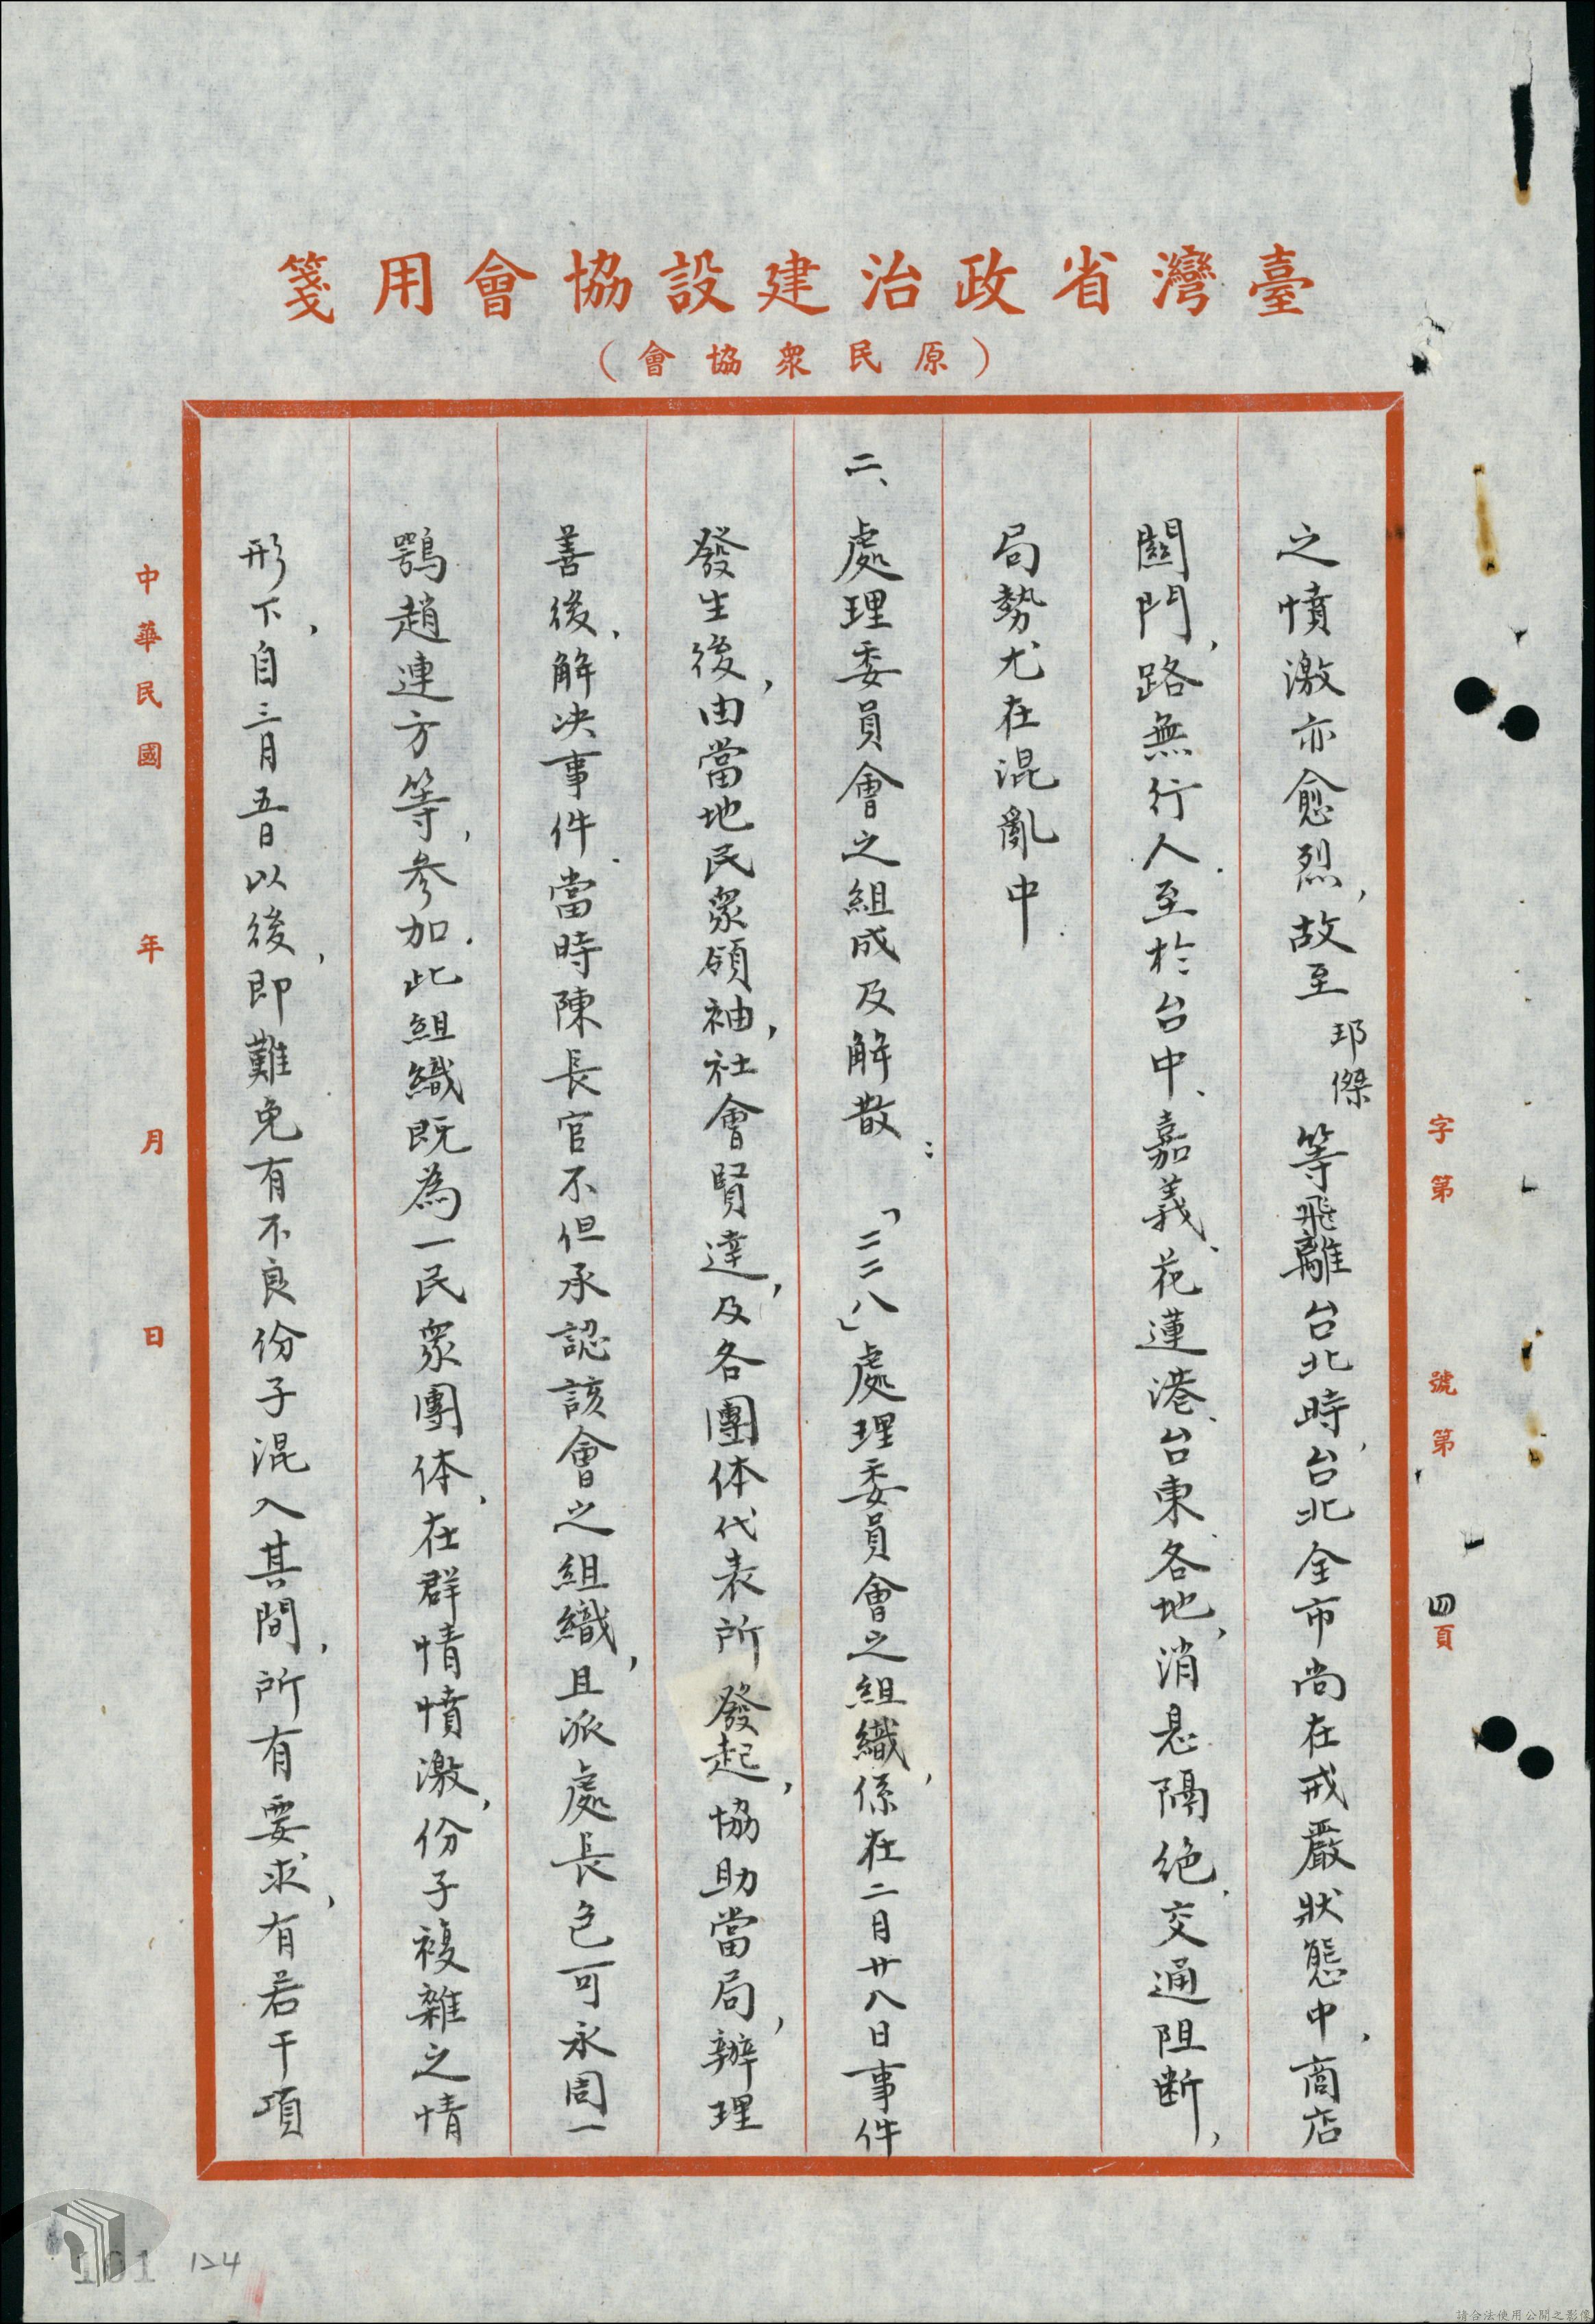 臺灣省政治建設協會用箋
（原民眾協會）
字第　號第四頁
之憤激亦愈烈，故至邦傑等飛離台北時，台北全市尚在戒嚴狀態中，商店
關門，路無行人．至於台中、嘉義、花蓮港、台東、各地，消息隔絕，交通阻断，
局勢尤在混亂中．
二、處理委員會之組成及解散：「二二八」處理委員會之組織，係在二月廿八日事件
發生後，由當地民眾領袖，社會賢達，及各團体代表所發起，協助當局，辦理
善後，解决事件．當時陳長官不但承認該會之組織，且派處長包可永周一
鶚趙連方等，參加．此組織既為一民眾團体，在群情憤激，份子複雜之情
形下，自三月五日以後，即難免有不良份子混入其間，所有要求，有若干項
中華民國　年　月　日
101
124
請合法使用公開之影像